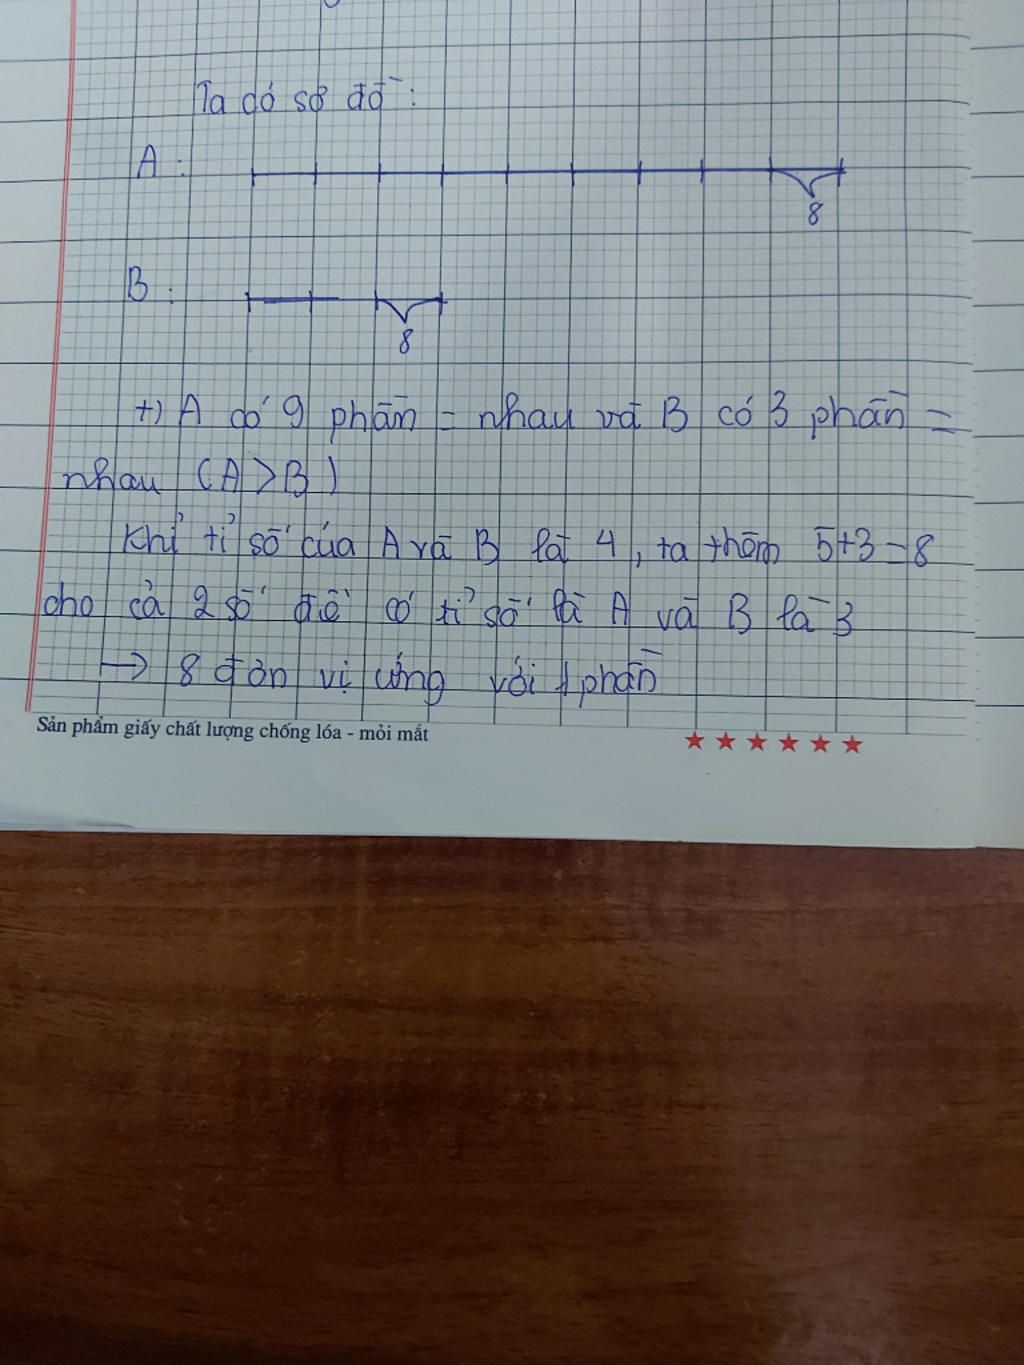 Ta có sơ đồ :
A :
8
B :
8
+) A có 9 phần = nhau và B có 3 phần =
nhau (A > B)
Khi tỉ số của A và B là 4, ta thêm 5+3=8
cho cả 2 số để có tỉ số là A và B là 3
→ 8 đơn vị ứng với 1 phần
Sản phẩm giấy chất lượng chống lóa - mỏi mắt